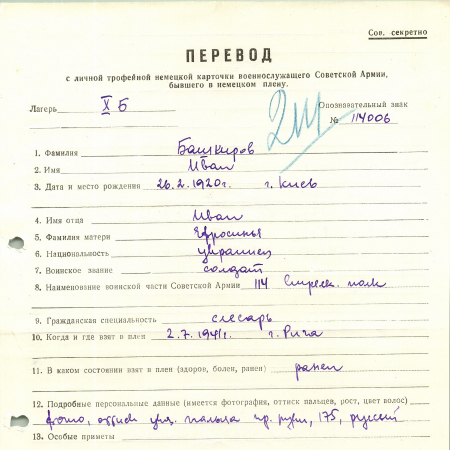 Сов. секретно
ПЕРЕВОД
с личной трофейной немецкой карточки военнослужащего Советской Армии,
бывшего в немецком плену.
Лагерь X Б Опознавательный знак
№ 114006
1. Фамилия Башкиров
2. Имя Иван
3. Дата и место рождения 26.2.1920г. г. Киев
4. Имя отца Иван
5. Фамилия матери Ефросинья
6. Национальность украинец
7. Воинское звание солдат
8. Наименование воинской части Советской Армии 114 Стрелк. полк
9. Гражданская специальность слесарь
10. Когда и где взят в плен 2.7.1941г. г. Рига
11. В каком состоянии взят в плен (здоров, болен, ранен) ранен
12. Подробные персональные данные (имеется фотография, оттиск пальцев, рост, цвет волос)
фото, оттиск ук. пальца пр. руки, 175, русый
13. Особые приметы